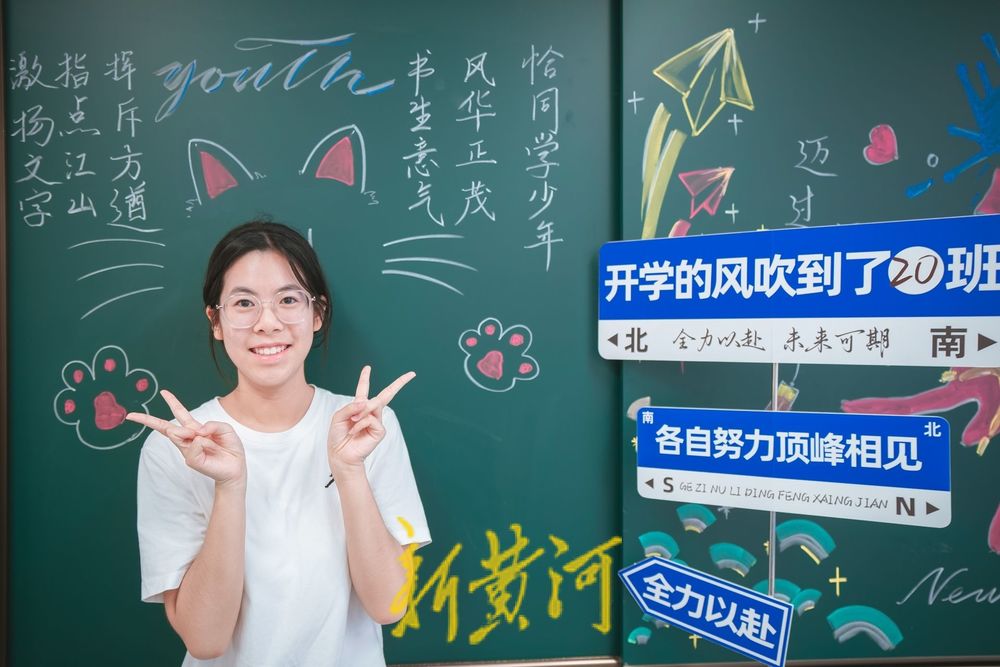 youth
恰同学少年
风华正茂
书生意气
挥斥方遒
指点江山
激扬文字
迈
过
开学的风吹到了20班
◀北 全力以赴 未来可期 南▶
南 北
各自努力顶峰相见
◀S GE ZI NU LI DING FENG XAING JIAN N▶
全力以赴
New
新黄河